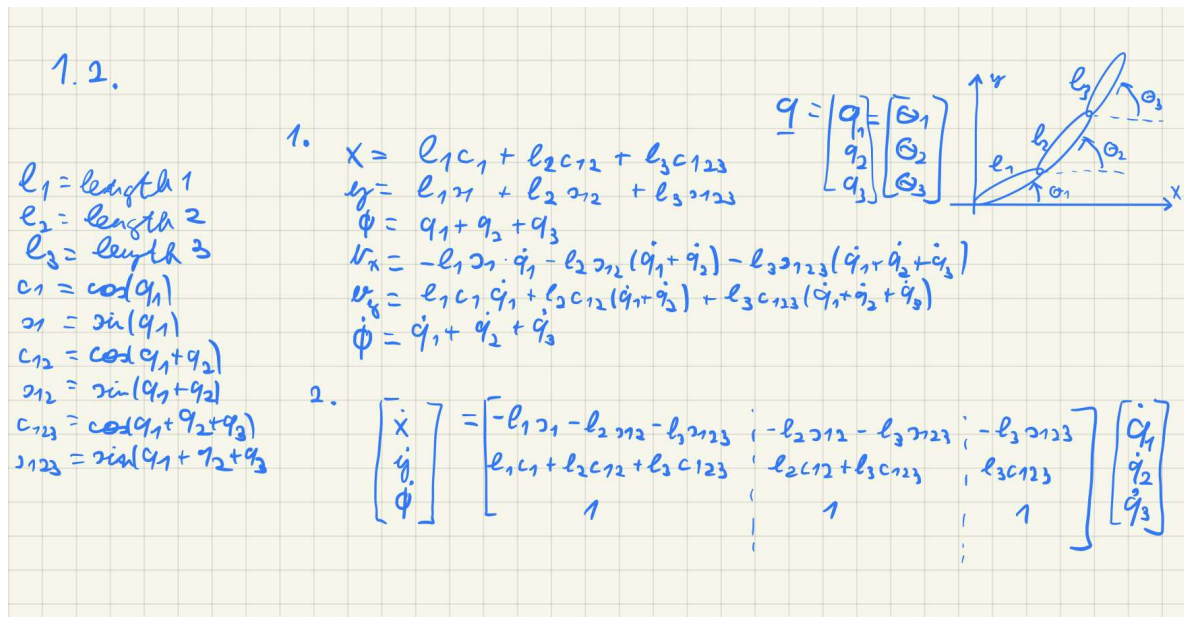 1.2.
l₁ = length 1
l₂ = length 2
l₃ = length 3
c1 = cos(q₁)
s1 = sin(q₁)
c₁₂ = cos(q₁+q₂)
s₁₂ = sin(q₁+q₂)
c₁₂₃ = cos(q₁+q₂+q₃)
s₁₂₃ = sin(q₁+q₂+q₃
1.
x = l₁c₁ + l₂c₁₂ + l₃c₁₂₃
y = l₁s₁ + l₂s₁₂ + l₃s₁₂₃
ϕ = q₁+q₂+q₃
vₓ = -l₁s₁·q̇₁ - l₂s₁₂(q̇₁+q̇₂) - l₃s₁₂₃(q̇₁+q̇₂+q̇₃)
v_y = l₁c₁q̇₁ + l₂c₁₂(q̇₁+q̇₂) + l₃c₁₂₃(q̇₁+q̇₂+q̇₃)
ϕ̇ = q̇₁+q̇₂+q̇₃
q = [q₁ q₂ q₃] = [Θ₁ Θ₂ Θ₃]
y
l₃
Θ₃
l₂
Θ₂
l₁
Θ₁
x
2.
[ẋ] = [-l₁s₁ - l₂s₁₂ - l₃s₁₂₃ ¦ -l₂s₁₂ - l₃s₁₂₃ ¦ -l₃s₁₂₃] [q̇₁]
[ẏ] [l₁c₁ + l₂c₁₂ + l₃c₁₂₃ ¦ l₂c₁₂ + l₃c₁₂₃ ¦ l₃c₁₂₃] [q̇₂]
[ϕ̇] [1 ¦ 1 ¦ 1] [q̇₃]